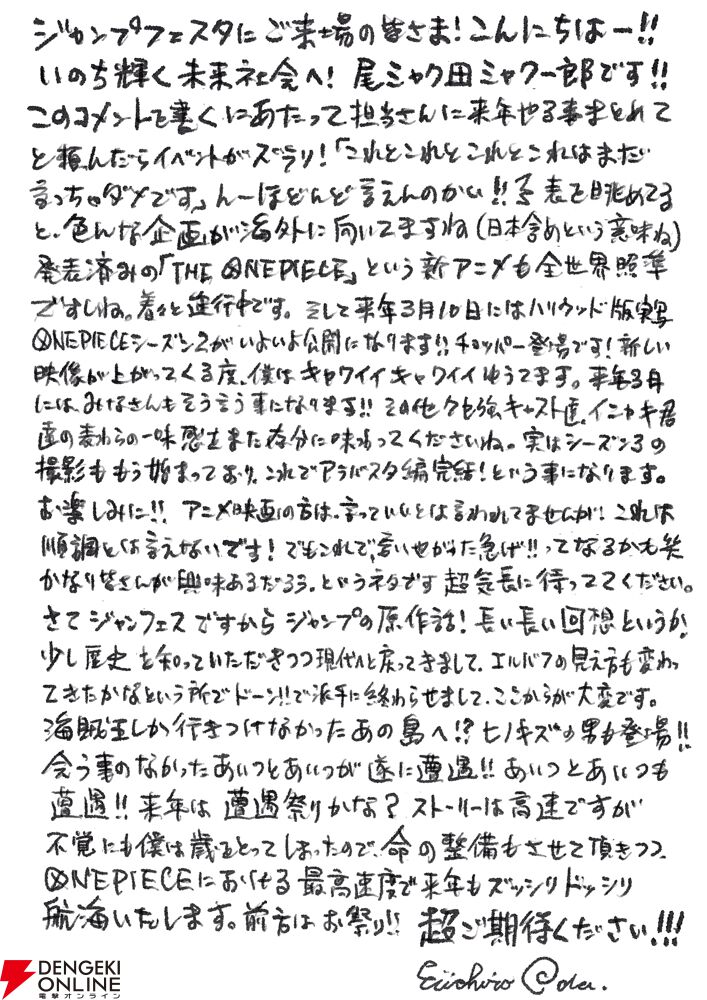 ジャンプフェスタにご来場の皆さま!こんにちはー!!
いのち輝く未来社会へ! 尾ミャク田ミャク一郎です!!
このコメントを書くにあたって担当さんに来年やる事まとめて
と頼んだらイベントがズラリ!「これとこれとこれとこれはまだ
言っちゃダメです」んーほとんど言えんのかい!!予表を眺めてる
と、色んな企画が海外に向いてますね(日本含めという意味ね)
発表済みの「THE ONE PIECE」という新アニメも全世界照準
ですしね。着々と進行中です。そして来年3月10日にはハリウッド版実写
ONE PIECEシーズン2がいよいよ公開になります!!チョッパー登場です!新しい
映像が上がってくる度、僕はキャワイイキャワイイゆうてます。来年3月
には、みなさんもそう言う事になります!! その他クセ強キャスト達、イニャキ君
達の麦わらの一味感をまた存分に味わってくださいね。実はシーズン3の
撮影ももう始まっており、これでアラバスタ編完結!という事になります。
お楽しみに!! アニメ映画の方は、言っていいとは言われてませんが!これは
順調とは言えないです!でもこれで、言いやがった急げ!!ってなるかも笑
かなり皆さんが興味あるだろう、というネタです 超気長に待っててください。
さてジャンフェスですからジャンプの原作話!長い長い回想というか、
少し歴史を知っていただきつつ現代へと戻ってきまして、エルバフの見え方も変わっ
てきたかなという所でドーン!!で派手に終わらせまして、ここからが大変です。
海賊王しか行きつけなかったあの島へ!?ヒノキズの男も登場!!
会う事のなかったあいつとあいつが遂に遭遇!!あいつとあいつも
遭遇!!来年は遭遇祭りかな?ストーリーは高速ですが
不覚にも僕は歳をとってしまったので、命の整備もさせて頂きつつ、
ONE PIECEにおける最高速度で来年もズッシリドッシリ
航海いたします。前方はお祭り!! 超ご期待ください!!!
Eiichiro Oda.
DENGEKI
ONLINE
電撃オンライン